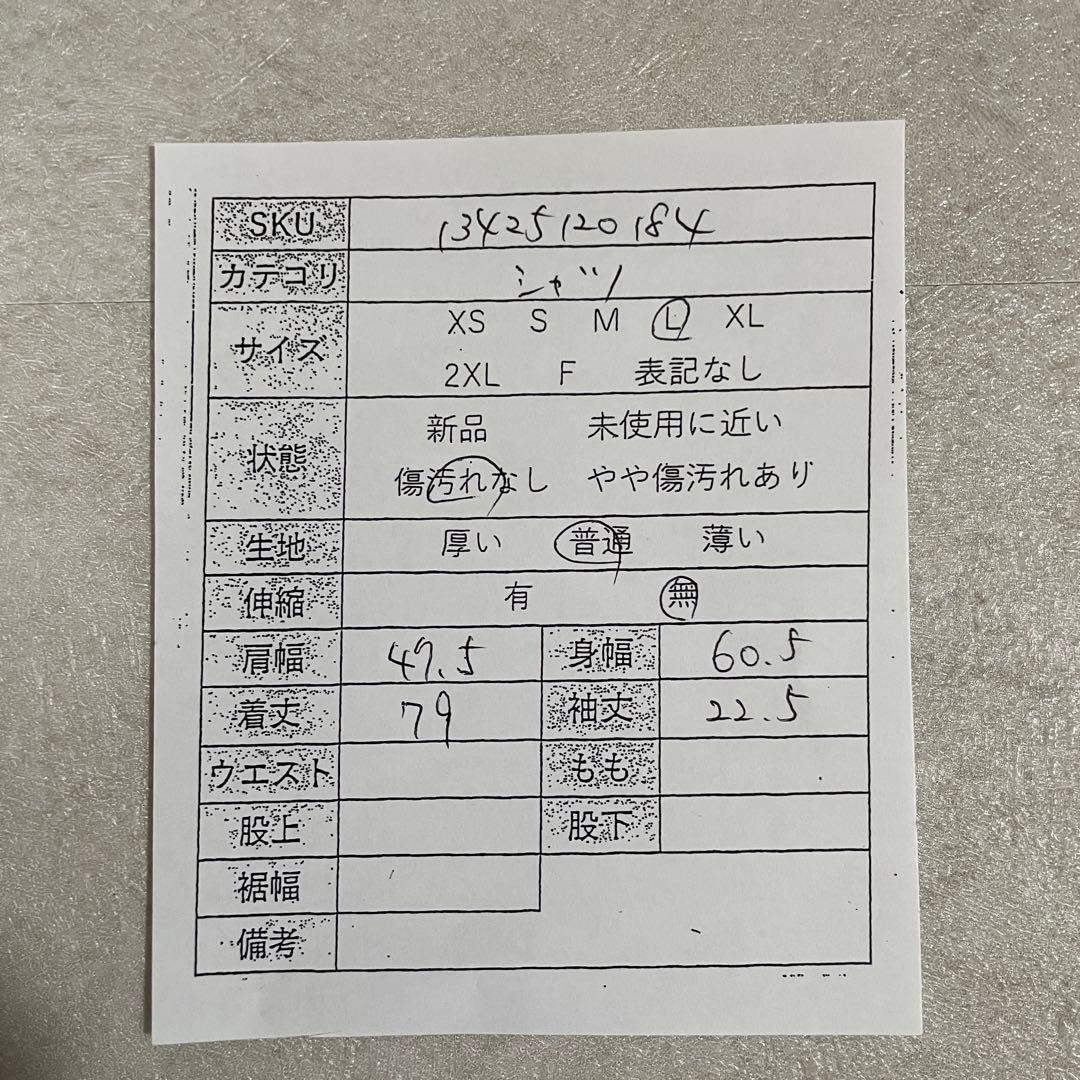 SKU 13425120184
カテゴリ シャツ
サイズ XS S M L XL
2XL F 表記なし
状態 新品 未使用に近い
傷汚れなし やや傷汚れあり
生地 厚い 普通 薄い
伸縮 有 無
肩幅 47.5 身幅 60.5
着丈 79 袖丈 22.5
ウエスト もも
股上 股下
裾幅
備考